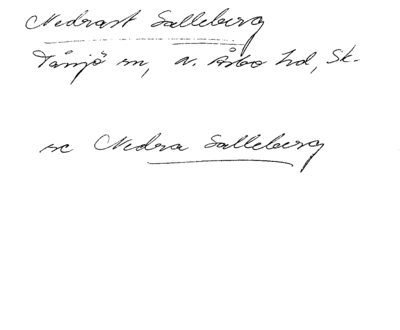 Nedrast Salleberg
Tåssjö sn, N. Åsbo hd, Sk.
se Nedra Salleberg